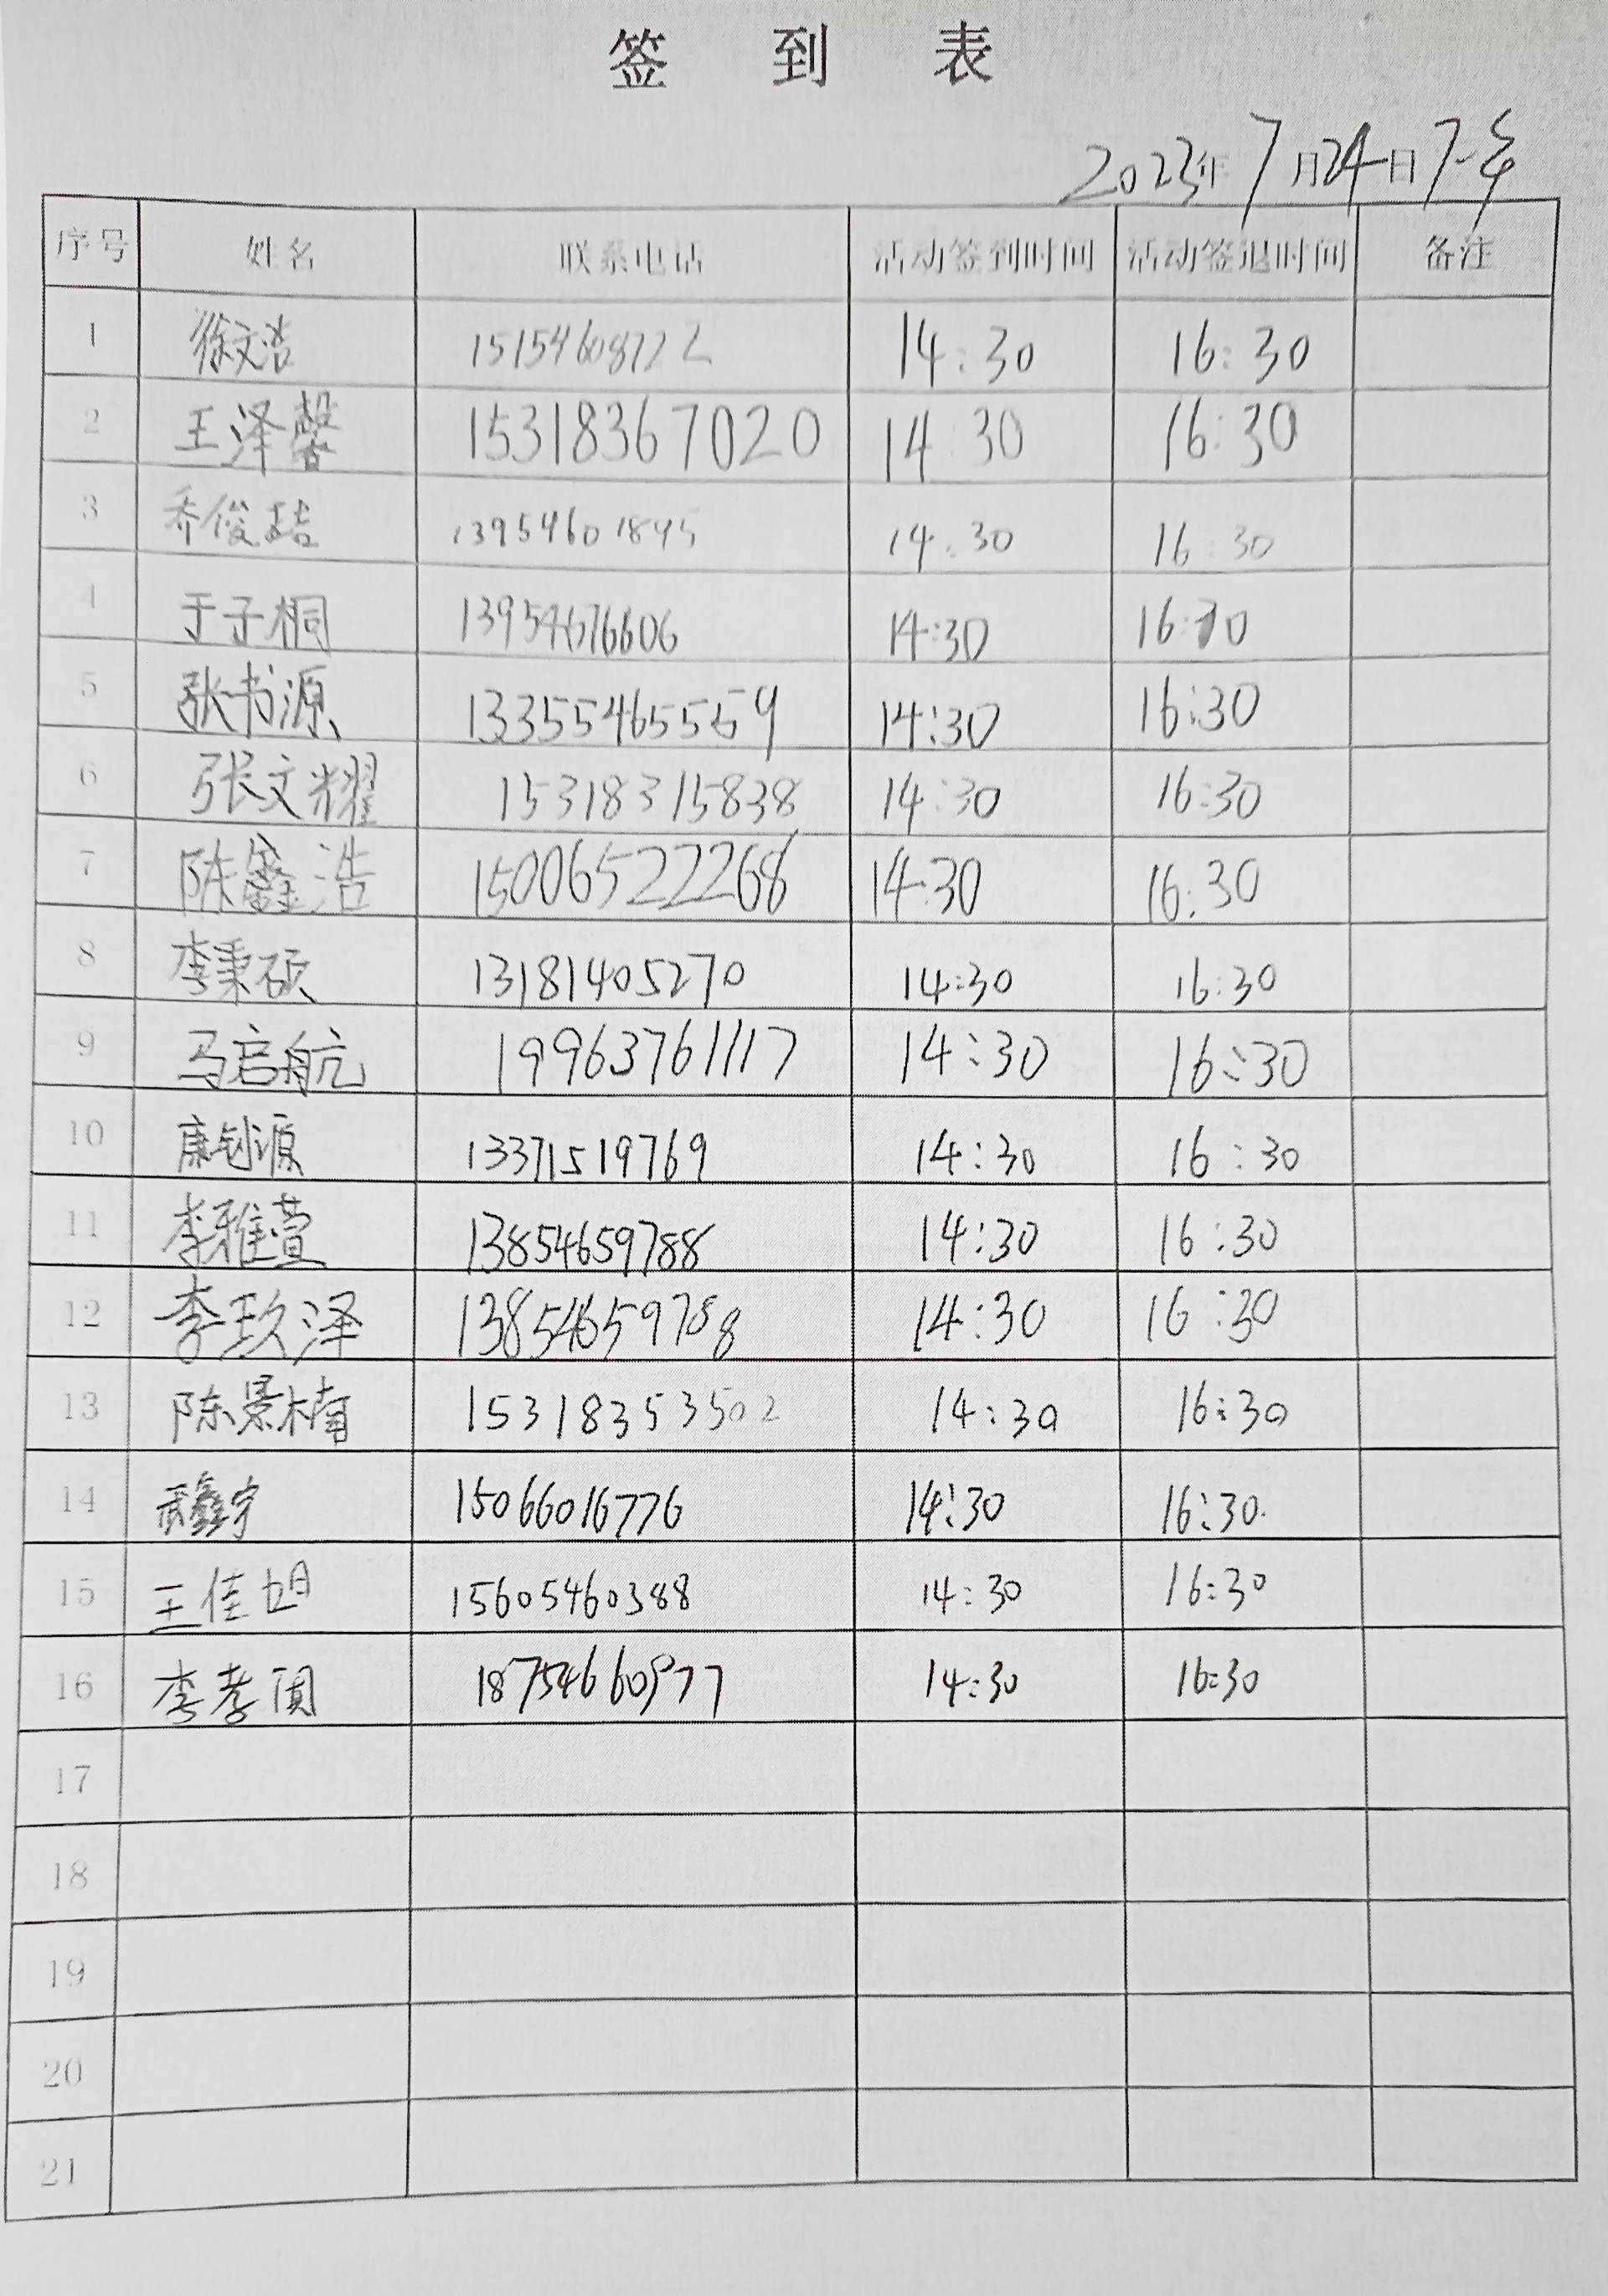 签 到 表
2023年7月24日
序号 姓名 联系电话 活动签到时间 活动签退时间 备注
1 徐文浩 15154608722 14:30 16:30
2 王泽馨 15318367020 14:30 16:30
3 乔俊喆 13954601895 14:30 16:30
4 于子桐 13954676606 14:30 16:30
5 张书源 13355465559 14:30 16:30
6 张文耀 15318315838 14:30 16:30
7 陈鑫浩 15006522268 14:30 16:30
8 李秉硕 13181405270 14:30 16:30
9 马启航 19963761117 14:30 16:30
10 康钊源 13371519769 14:30 16:30
11 李雅萱 13854659788 14:30 16:30
12 李玖泽 13854659788 14:30 16:30
13 陈景楠 15318353502 14:30 16:30
14 武鑫宇 15066016776 14:30 16:30
15 王佳旭 15605460388 14:30 16:30
16 李孝 18754660977 14:30 16:30
17
18
19
20
21